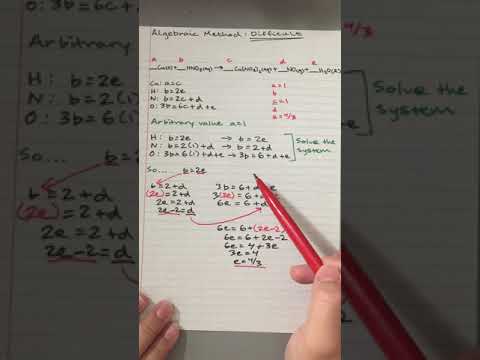 Algebraic Method: Difficult
a b c d e
__Cu(s)+__HNO₃(aq) → __Cu(NO₃)₂(aq)+__NO(g)+__H₂O(l)
Cu: a=c
H: b=2e
N: b=2c+d
O: 3b=6c+d+e
a=1
b
c=1
d
e=4/3
Arbitrary value a=1
H: b=2e → b=2e
N: b=2(1)+d → b=2+d
O: 3b=6(1)+d+e → 3b=6+d+e
Solve the system
So... b=2e
b=2+d
(2e)=2+d
2e=2+d
2e-2=d
3b=6+d+e
3(2e)=6+d
6e=6+d
6e=6+(2e-2)
6e=6+2e-2
6e=4+3e
3e=4
e=4/3
Arbitr
H: b=2e
N: b=2(1
O: 3b=6(
Solve the
system
So...
b=2+d
(2e)=2+d
2e=2+d
2e-2=d